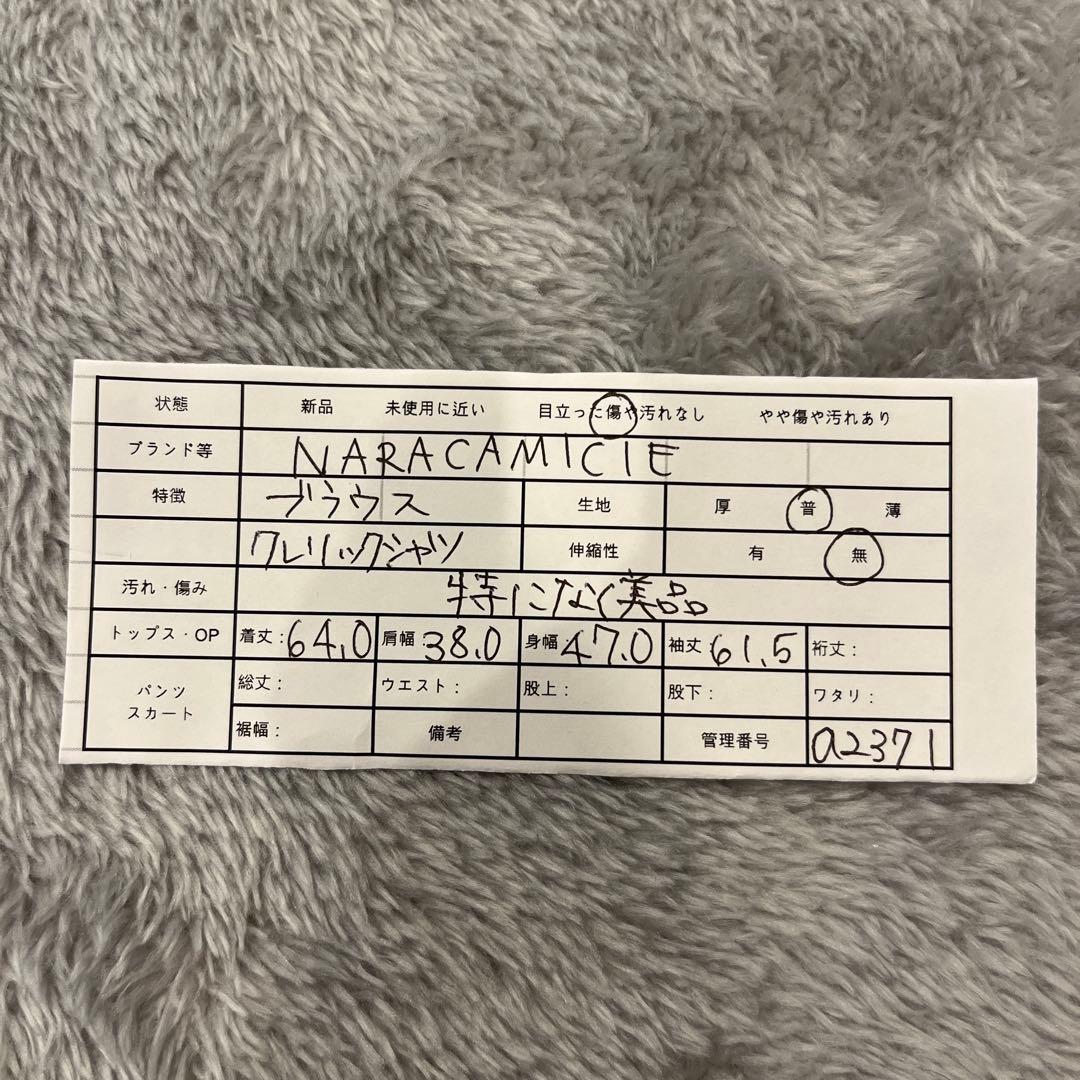 状態 新品 未使用に近い 目立った傷や汚れなし やや傷や汚れあり
ブランド等 NARACAMICIE
特徴 ブラウス 生地 厚 普 薄
クレリックシャツ 伸縮性 有 無
汚れ・傷み 特になく美品
トップス・OP 着丈：64.0 肩幅：38.0 身幅：47.0 袖丈：61.5 裄丈：
パンツ スカート 総丈： ウエスト： 股上： 股下： ワタリ：
裾幅： 備考 管理番号 a2371